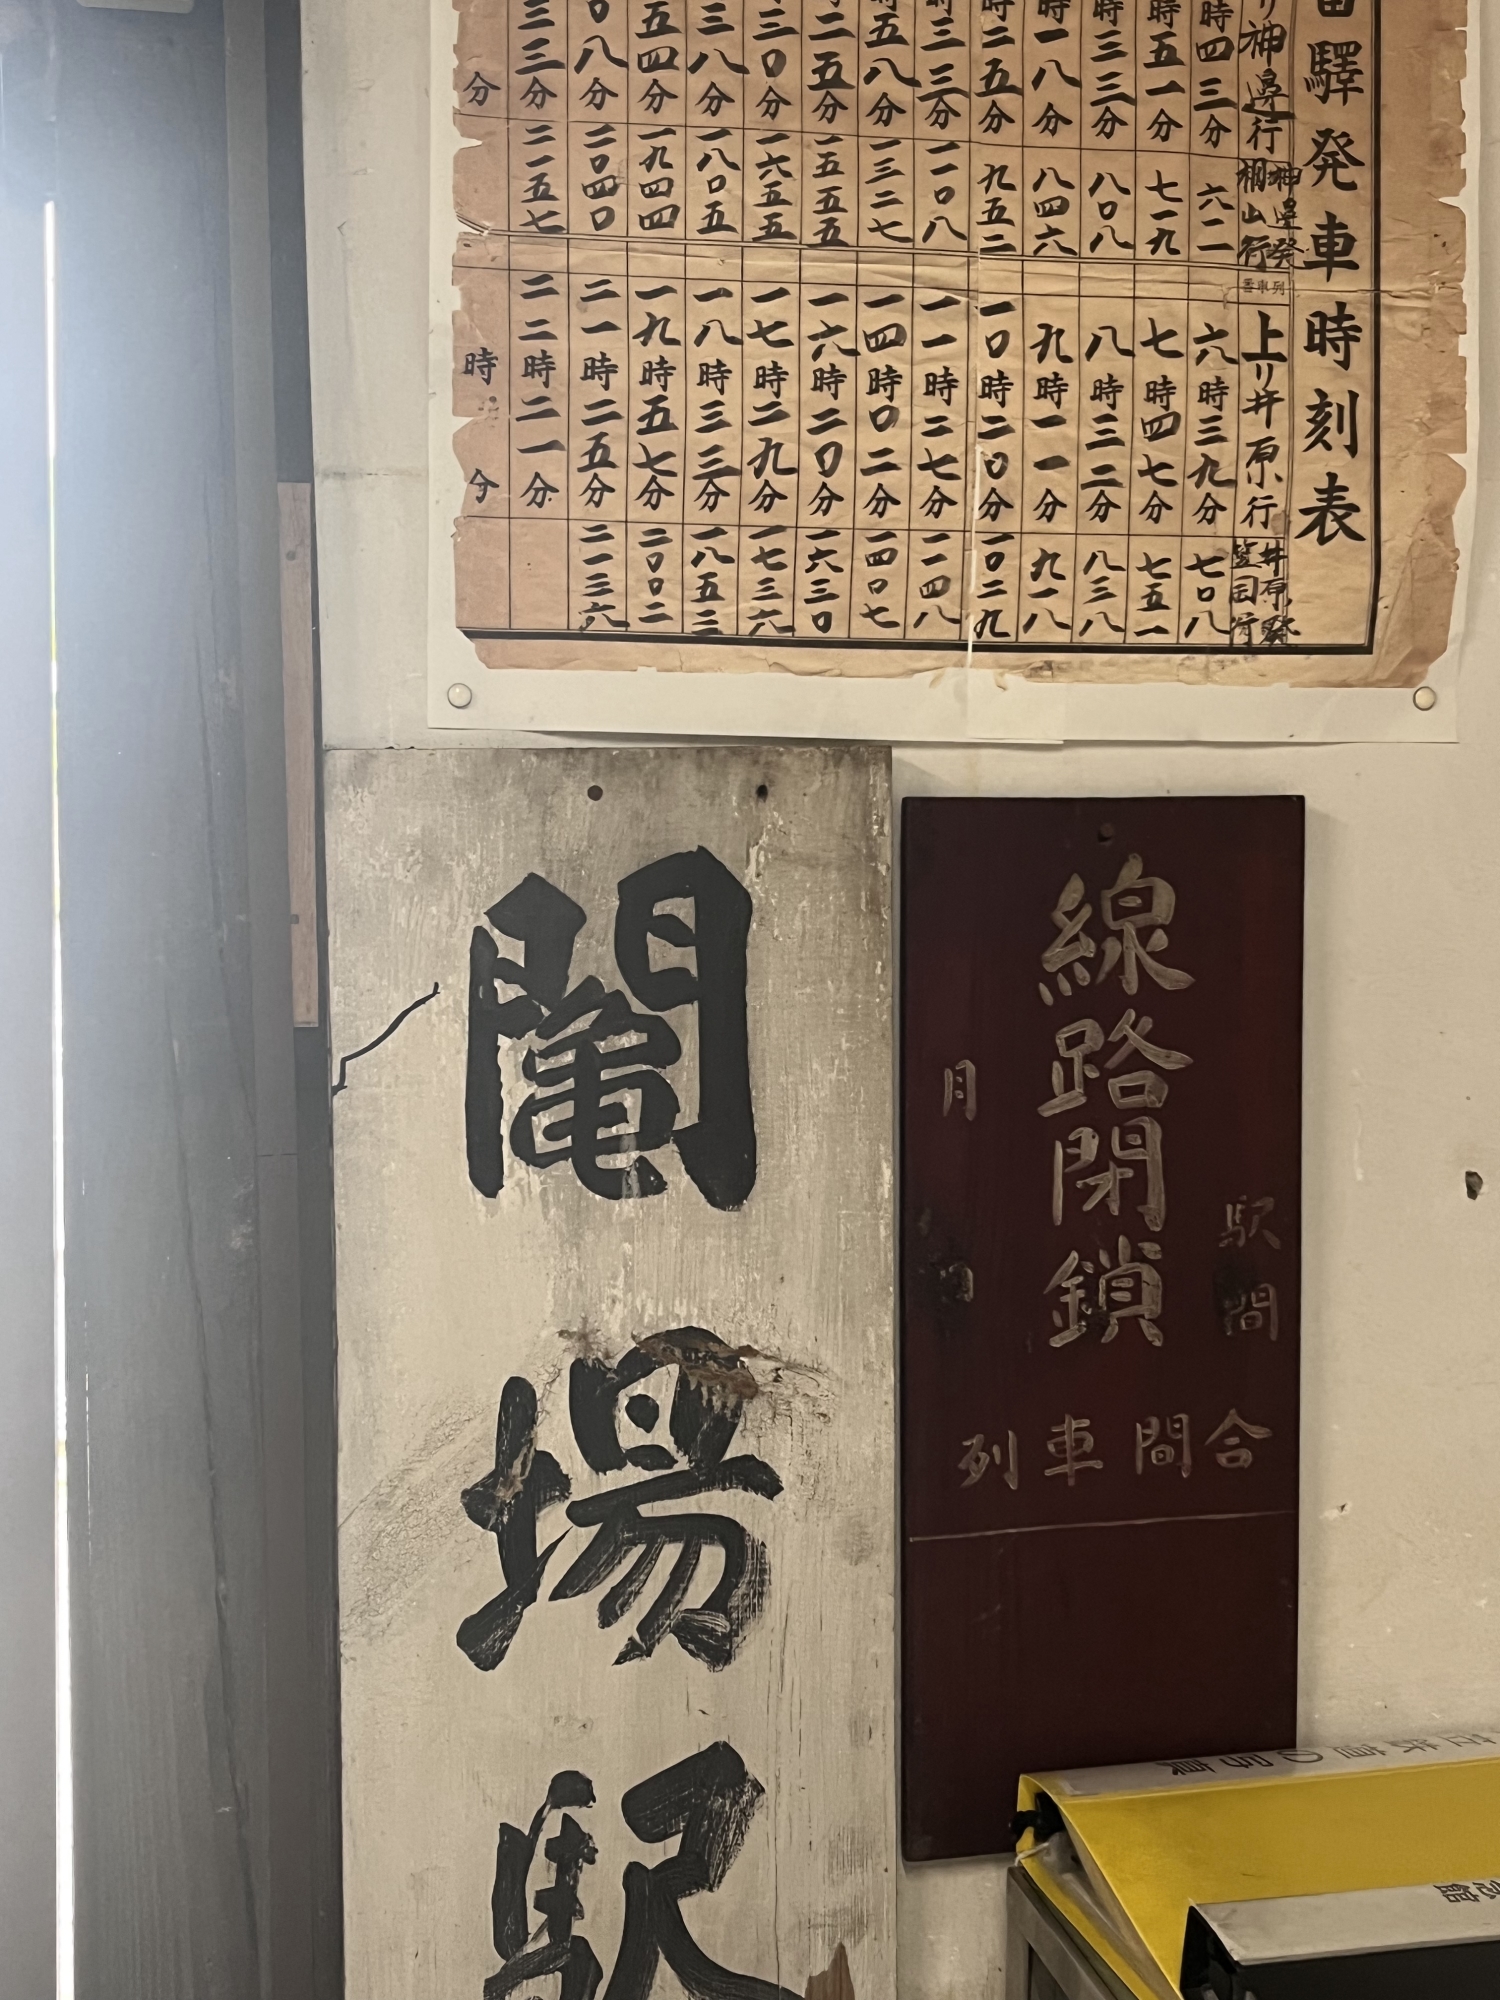 驛発車時刻表
リ神邊行
神邊発
福山行
上リ井原行
井原発
笠岡行
時四三分 六二一 六時三九分 七〇八
時五一分 七一九 七時四七分 七五一
時三三分 八〇八 八時三二分 八三八
時一八分 八四六 九時一一分 九一八
時二五分 九五二 一〇時二〇分 一〇二九
時三三分 一一〇八 一一時二七分 一一四八
時五八分 一三二七 一四時〇二分 一四〇七
時二五分 一五五五 一六時二〇分 一六三〇
三〇分 一六五五 一七時二九分 一七三六
三八分 一八〇五 一八時三三分 一八五三
五四分 一九四四 一九時五七分 二〇〇二
〇八分 二〇四〇 二一時二五分 二一三六
三三分 二一五七 二二時二一分
分 時 分
駅間
線路閉鎖
月 日
列車間合
鬮場駅